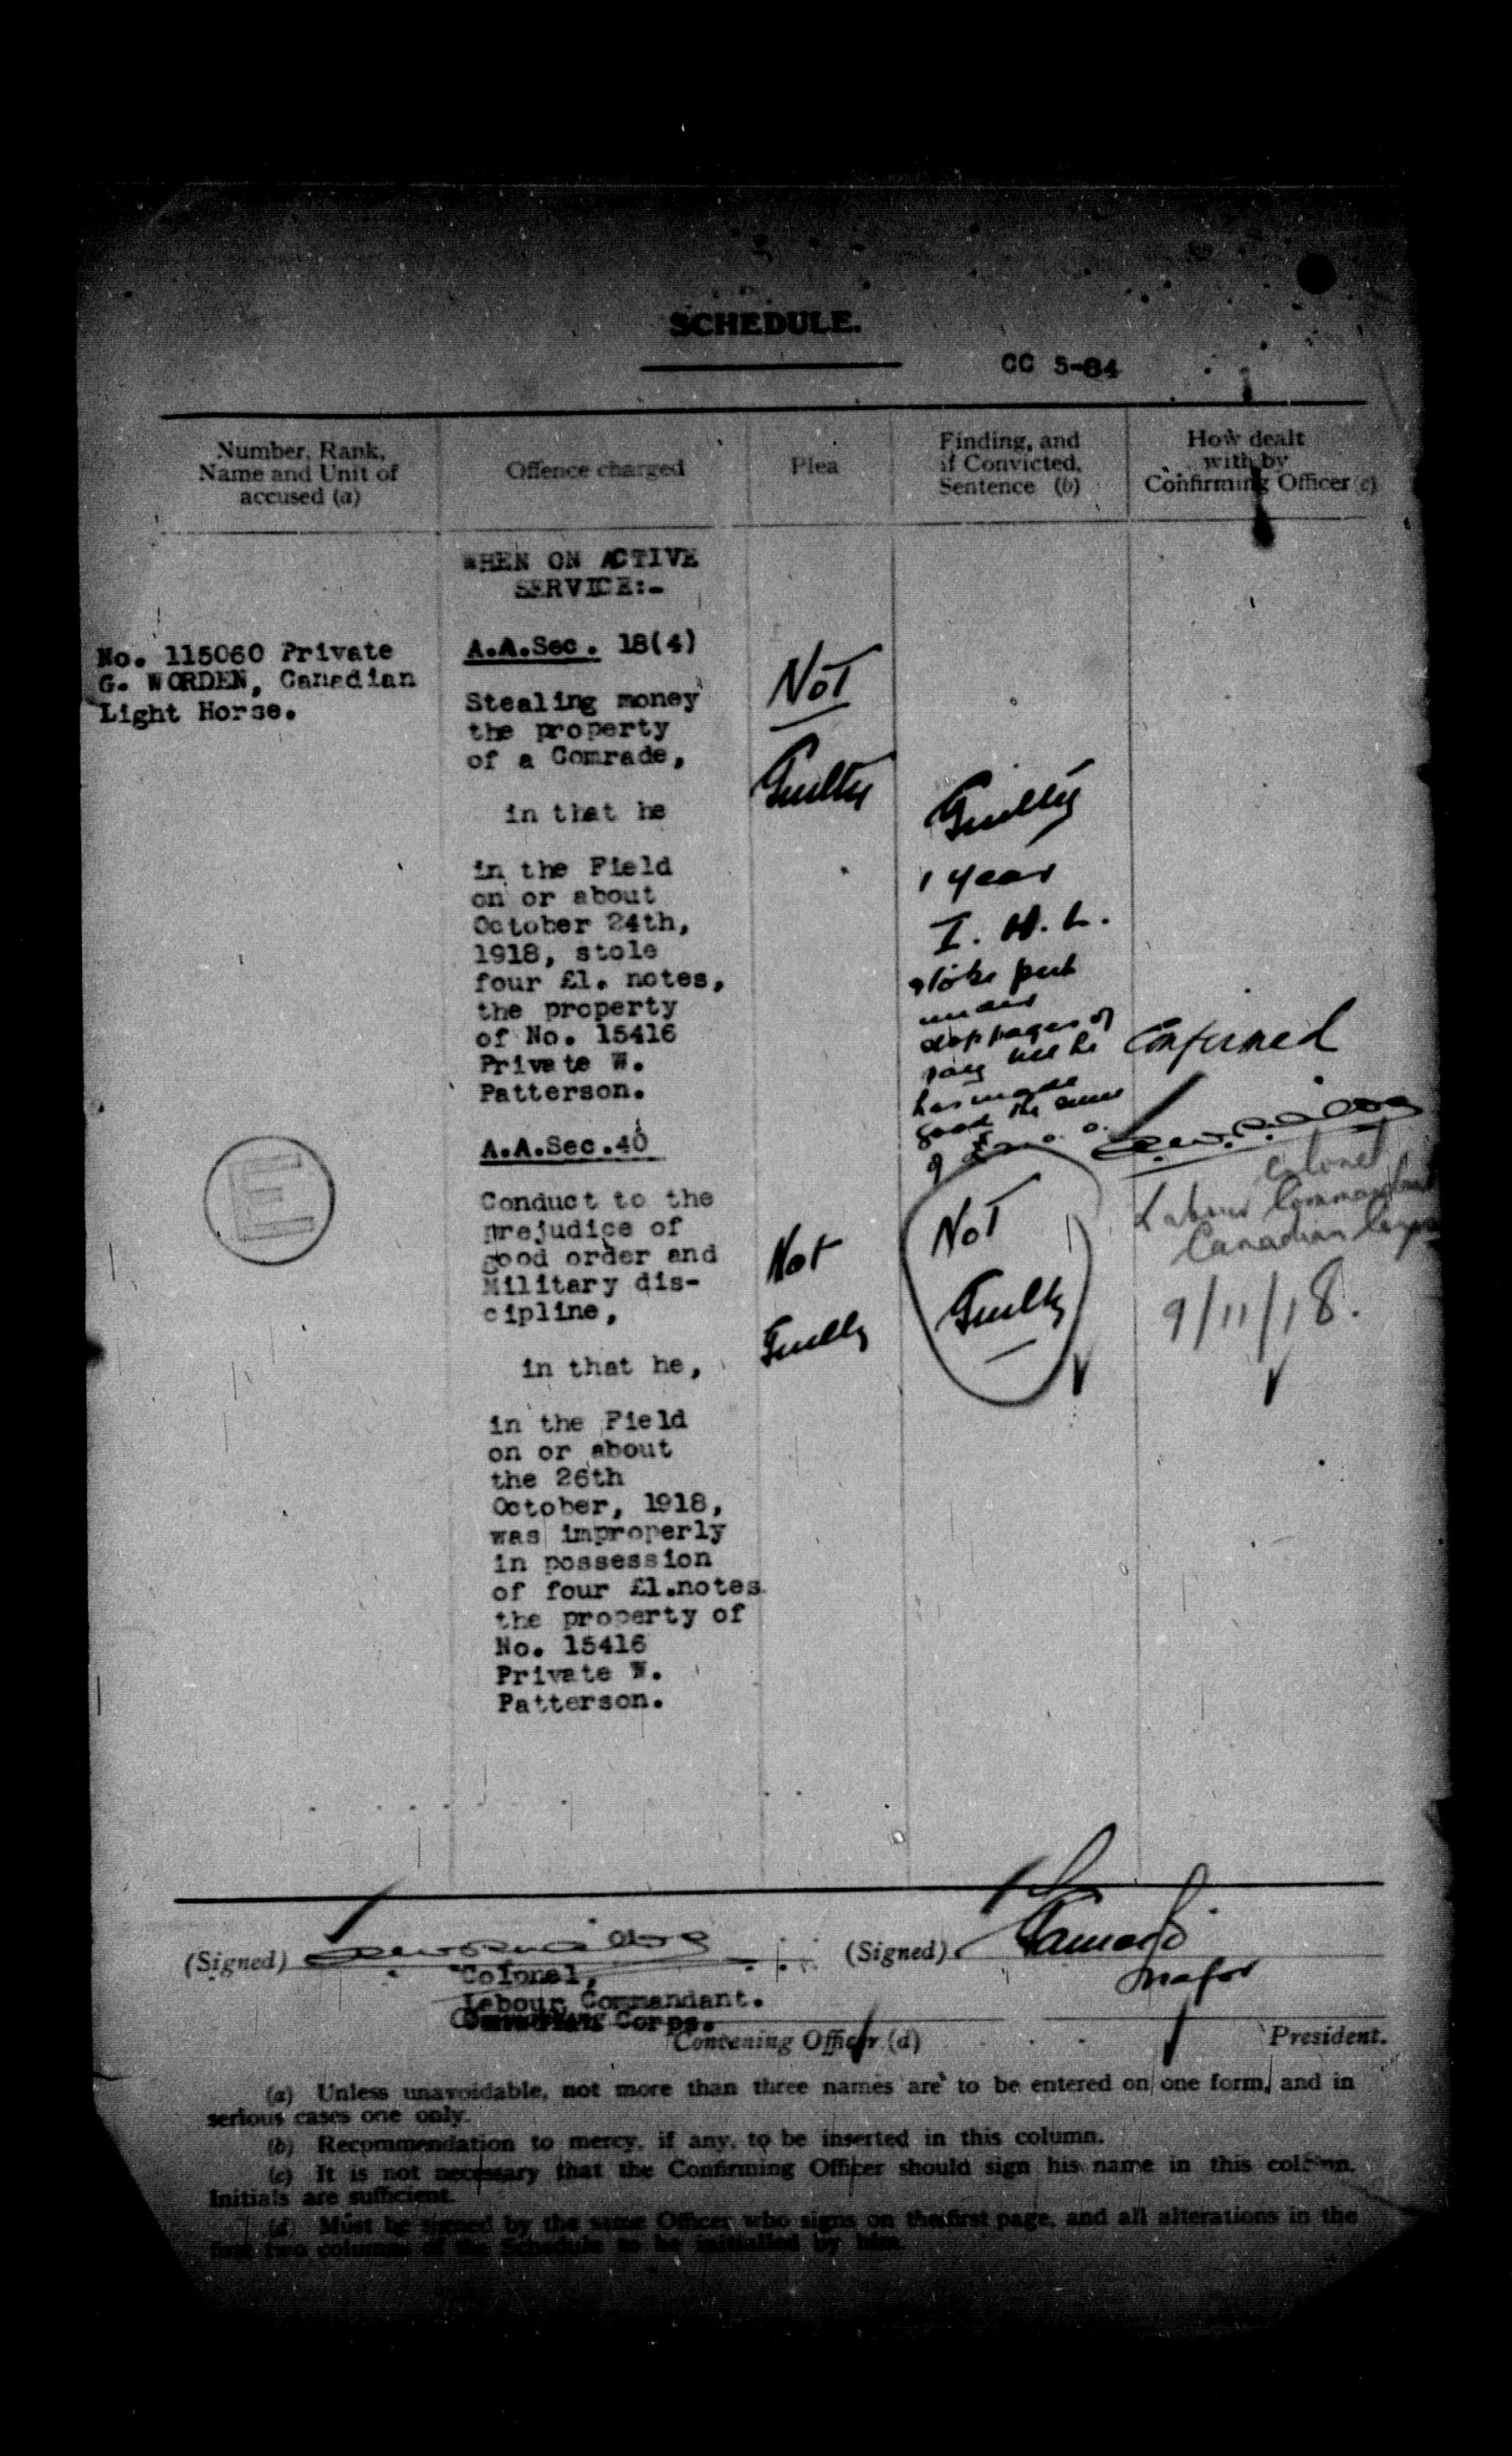 SCHEDULE.
CC 5-84
Number, Rank,
Name and Unit of
accused (a)
Offence charged
Plea
Finding, and
if Convicted,
Sentence (b)
How dealt
with by
Confirming Officer (c)
WHEN ON ACTIVE
SERVICE:-
No. 115060 Private
G. WORDEN, Canadian
Light Horse.
A.A.Sec. 18(4)
Stealing money
the property
of a Comrade,
in that he
in the Field
on or about
October 24th,
1918, stole
four £1. notes,
the property
of No. 15416
Private W.
Patterson.
Not
Guilty
Guilty
1 year
I. H. L.
& to be put
under
stoppages of
pay till he
has made
good the sum
of £
Confirmed
Colonel
Labour Commandant
Canadian Corps
9/11/18.
E
A.A.Sec.40
Conduct to the
prejudice of
good order and
Military dis-
cipline,
in that he,
in the Field
on or about
the 26th
October, 1918,
was improperly
in possession
of four £1.notes
the property of
No. 15416
Private W.
Patterson.
Not
Guilty
Not
Guilty
(Signed)
Colonel,
Labour Commandant.
Canadian Corps.
Convening Officer (d)
(Signed)
Major
President.
(a) Unless unavoidable, not more than three names are to be entered on one form, and in
serious cases one only.
(b) Recommendation to mercy, if any, to be inserted in this column.
(c) It is not necessary that the Confirming Officer should sign his name in this column.
Initials are sufficient.
(d) Must be signed by the same Officer who signs on the first page, and all alterations in the
first two columns of the Schedule to be initialled by him.